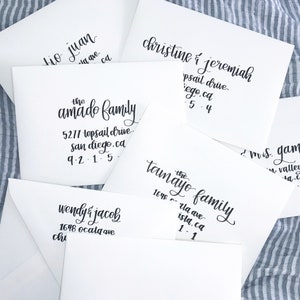 juan
christine & jeremiah
topsail drive
san diego, ca
5 · 4
the
amado family
5277 topsail drive
san diego, ca
9 · 2 · 1 · 5
mrs. gam
valley
the
tamayo family
1648 ocala
ista, ca
1 · 1
wendy & jacob
1648 ocala ave